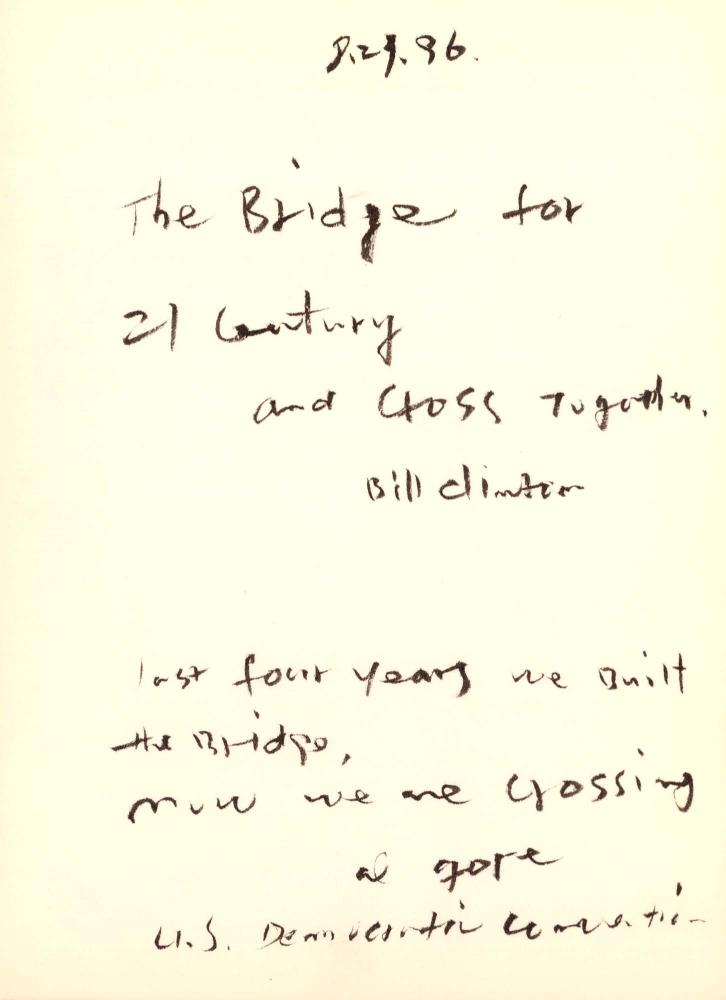 8.29.96.
The Bridge for
21 Century
and Cross Together.
Bill Clinton
last four years we Built
the Bridge,
now we are Crossing
al gore
U.S. Democratic Convention